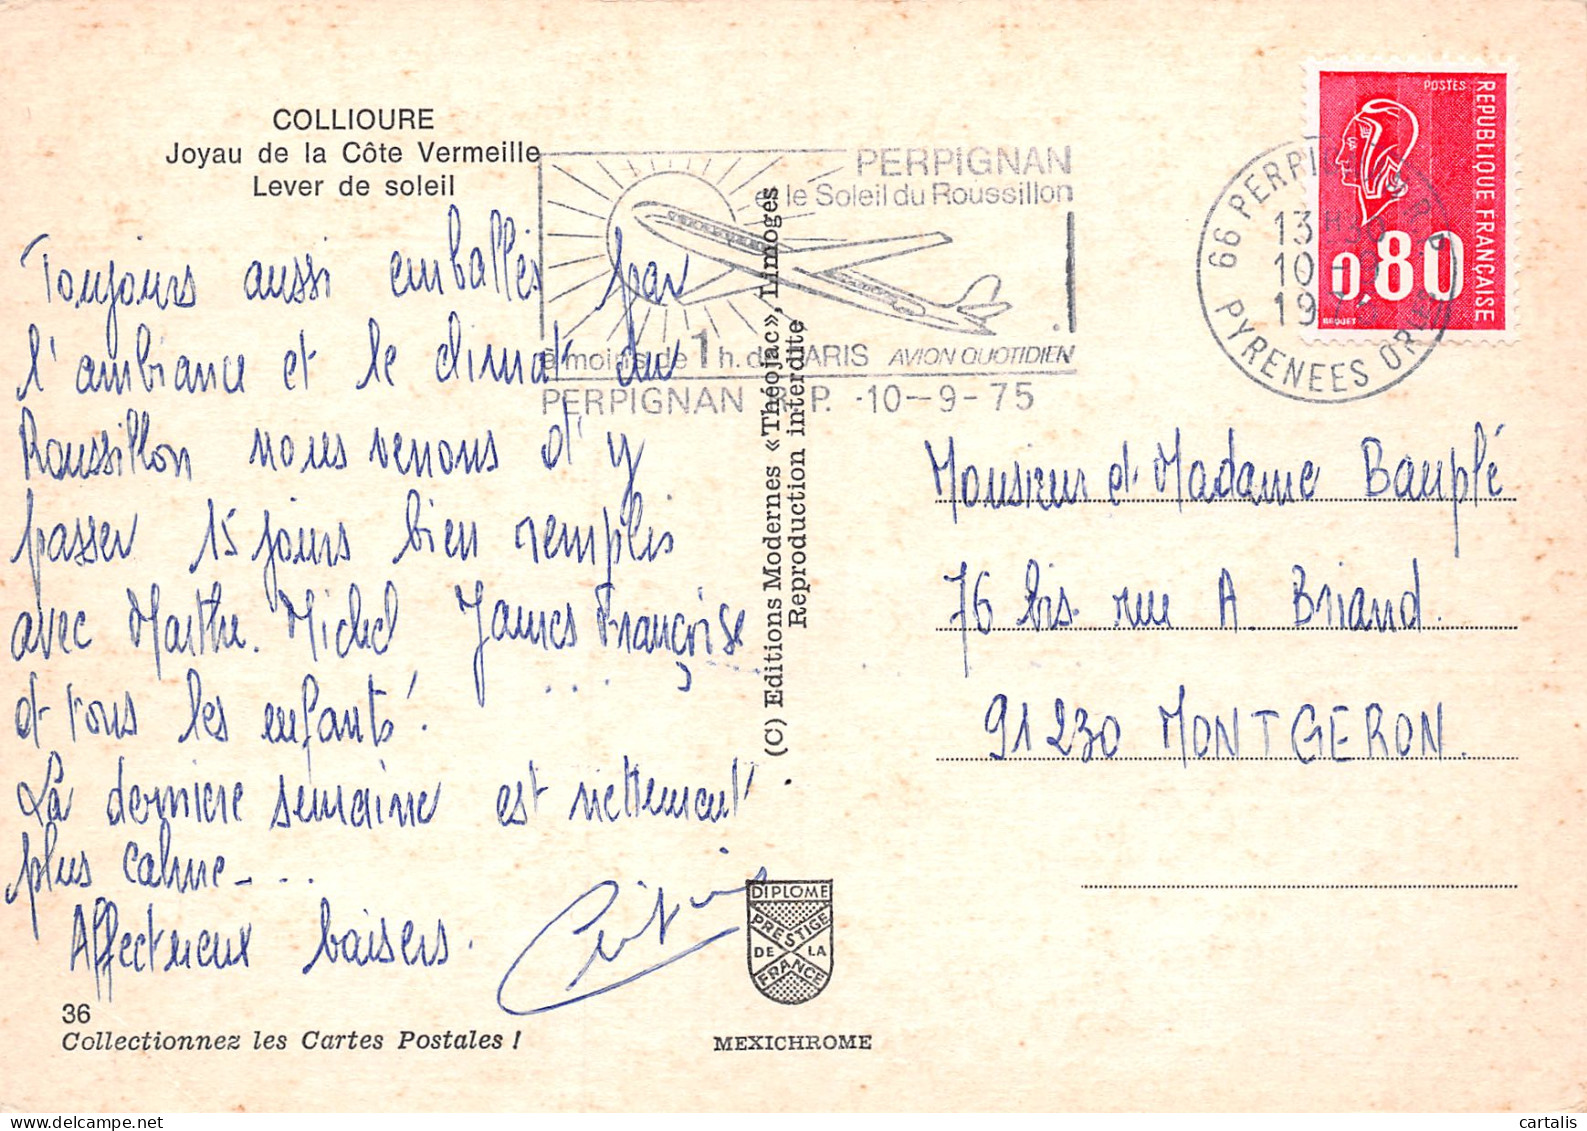 COLLIOURE
Joyau de la Côte Vermeille
Lever de soleil
Toujours aussi emballés par
l'ambiance et le climat du
Roussillon nous venons d'y
passer 15 jours bien remplis
avec Marthe. Michel James Françoise
et tous les enfants !
La derniere semaine est nettement
plus calme_...
Affectueux baisers.
36
Collectionnez les Cartes Postales !
(C) Editions Modernes «Théojac», Limoges
Reproduction interdite
DIPLOME
PRESTIGE
DE LA
FRANCE
MEXICHROME
PERPIGNAN
le Soleil du Roussillon
à moins de 1 h. de PARIS AVION QUOTIDIEN
PERPIGNAN R.P. -10-9-75
66 PERPIGNAN R.P.
13H30
10-9
1975
PYRENEES ORLES
POSTES
REPUBLIQUE FRANÇAISE
0,80
BEQUET
Monsieur et Madame Bauplé
76 bis rue A. Briand.
91230 MONTGERON.
cartalis